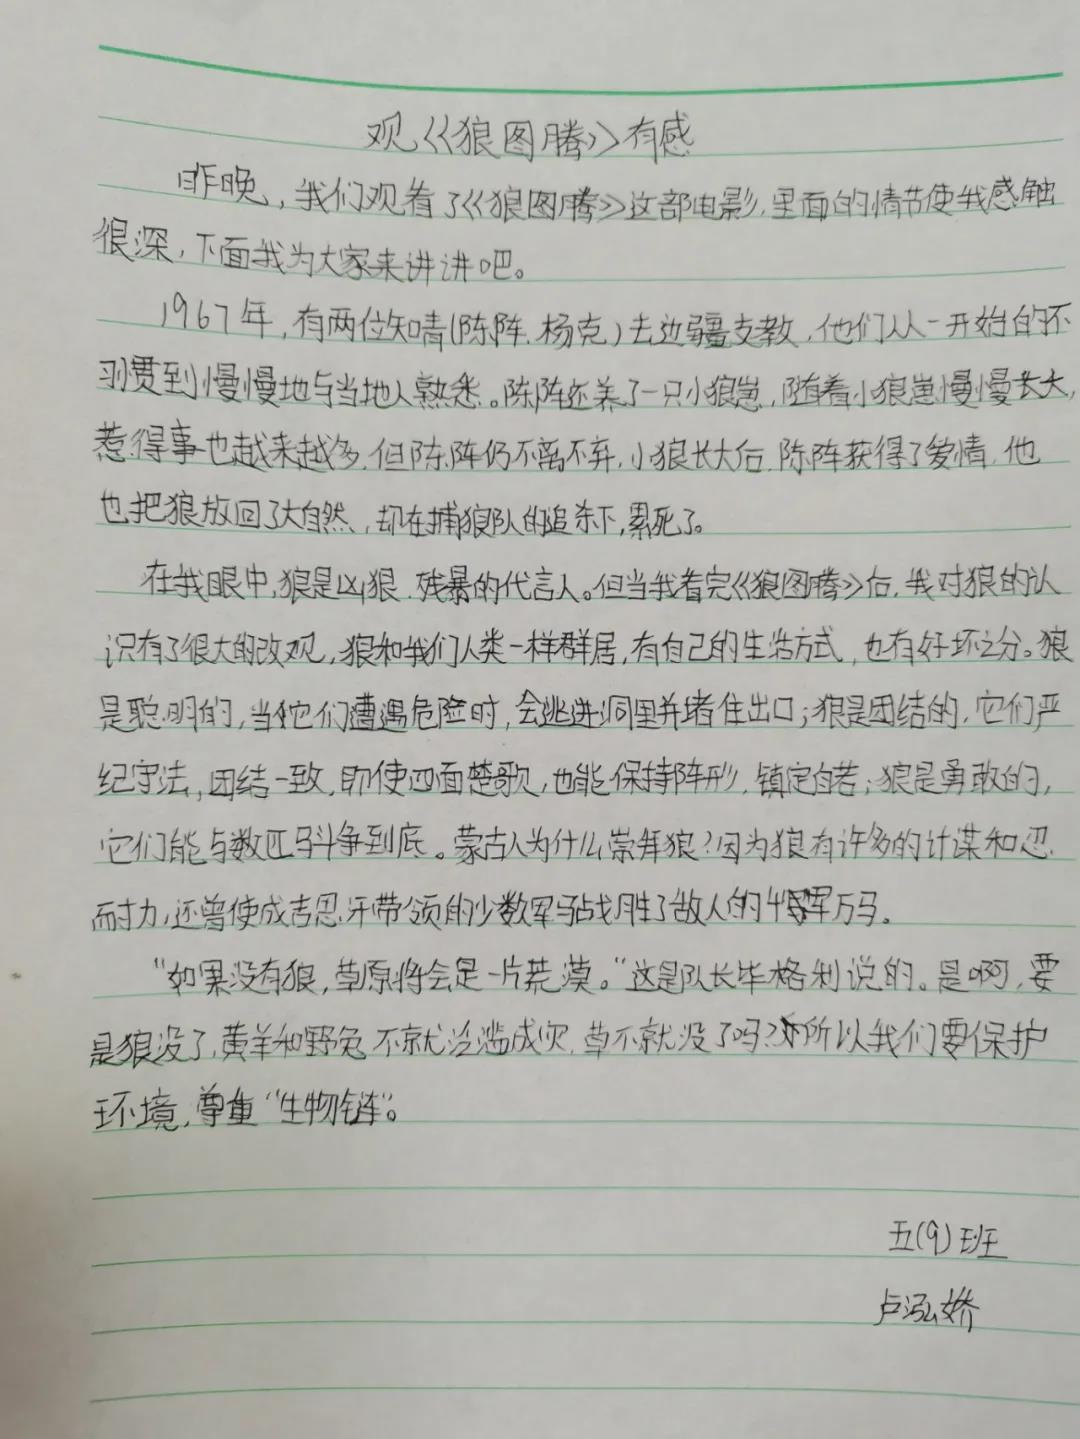 观《狼图腾》有感
昨晚,我们观看了《狼图腾》这部电影,里面的情节使我感触
很深,下面我为大家来讲讲吧。
1967年,有两位知青(陈阵.杨克)去边疆支教,他们从一开始的不
习惯到慢慢地与当地人熟悉。陈阵还养了一只小狼崽,随着小狼崽慢慢长大,
惹得事也越来越多,但陈阵仍不离不弃,小狼长大后,陈阵获得了爱情,他
也把狼放回了大自然,却在捕狼队的追杀下,累死了。
在我眼中,狼是凶狠.残暴的代言人。但当我看完《狼图腾》后,我对狼的认
识有了很大的改观,狼和我们人类一样群居,有自己的生活方式,也有好坏之分。狼
是聪明的,当它们遭遇危险时,会逃进洞里并堵住出口;狼是团结的,它们严
纪守法,团结一致,即使四面楚歌,也能保持阵形,镇定自若;狼是勇敢的,
它们能与数匹马斗争到底。蒙古人为什么崇拜狼?因为狼有许多的计谋和忍
耐力,还曾使成吉思汗带领的少数军马战胜了敌人的千军万马。
“如果没有狼,草原将会是一片荒漠。”这是队长毕格利说的。是啊,要
是狼没了,黄羊和野兔不就泛滥成灾,草不就没了吗?所以我们要保护
环境,尊重“生物链”。
五(9)班
卢泓娇